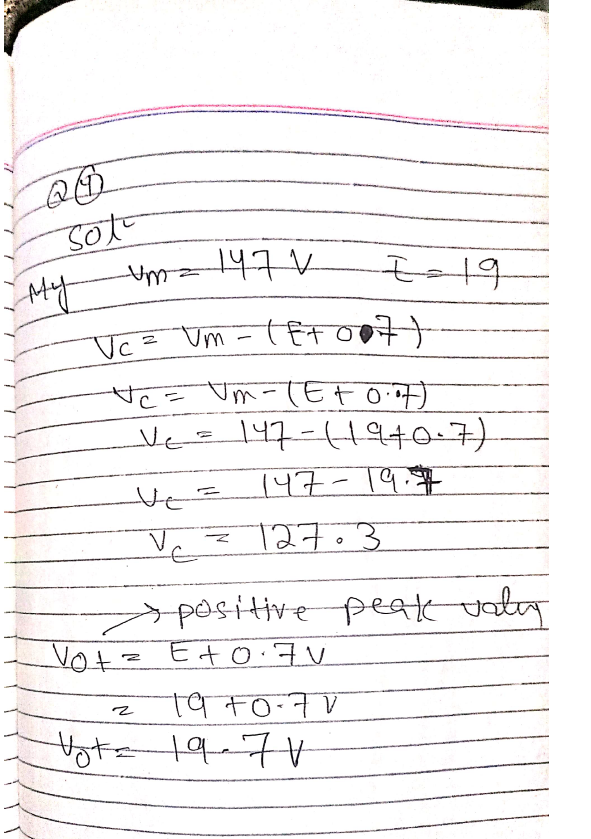 Q①
Sol
My Vm = 147 V E = 19
Vc = Vm - (E + 0.7)
Vc = Vm - (E + 0.7)
Vc = 147 - (19 + 0.7)
Vc = 147 - 19.7
Vc = 127.3
→ positive peak
Vo+ = E + 0.7 V
= 19 + 0.7 V
Vo+ = 19.7 V